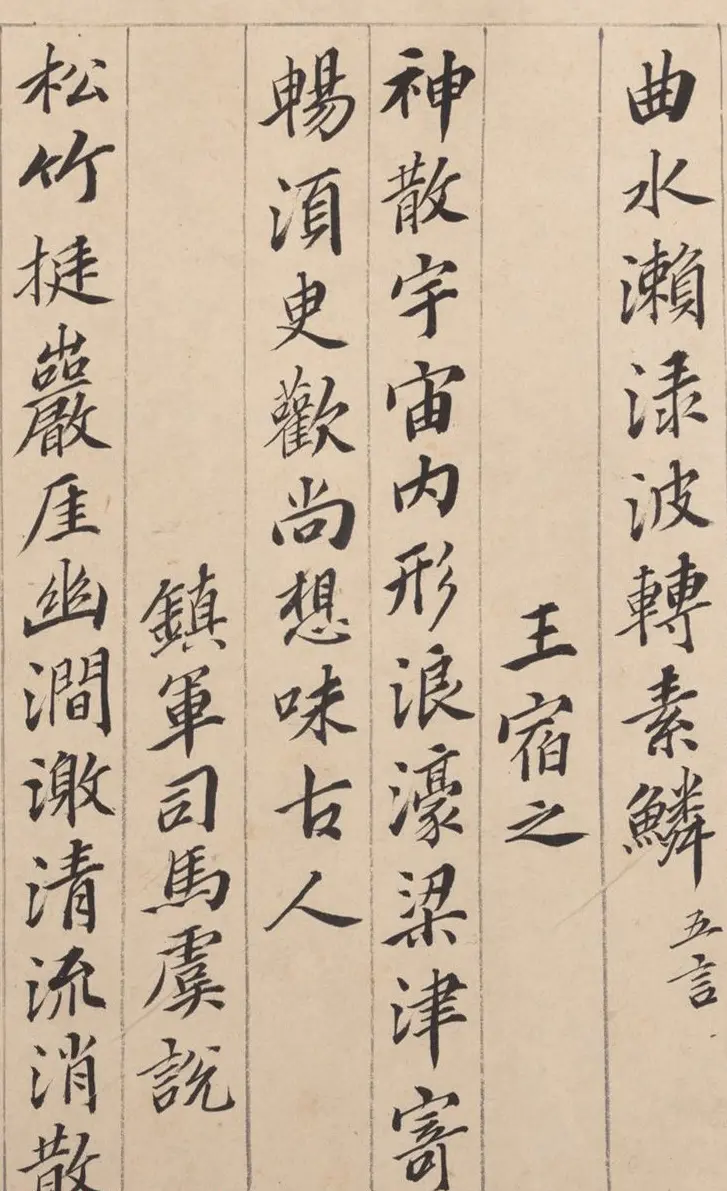 曲水瀨渌波轉素鱗 五言
王宿之
神散宇宙内形浪濠梁津寄
暢須臾歡尚想味古人
鎮軍司馬虞説
松竹挺巖崖幽澗激清流消散